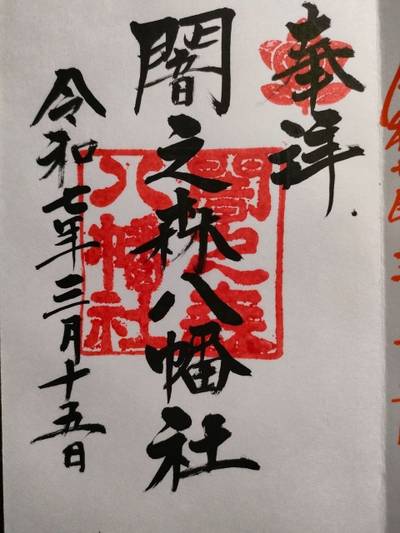 奉拝
闇之森八幡社
令和七年三月十五日
闇之森
八幡社